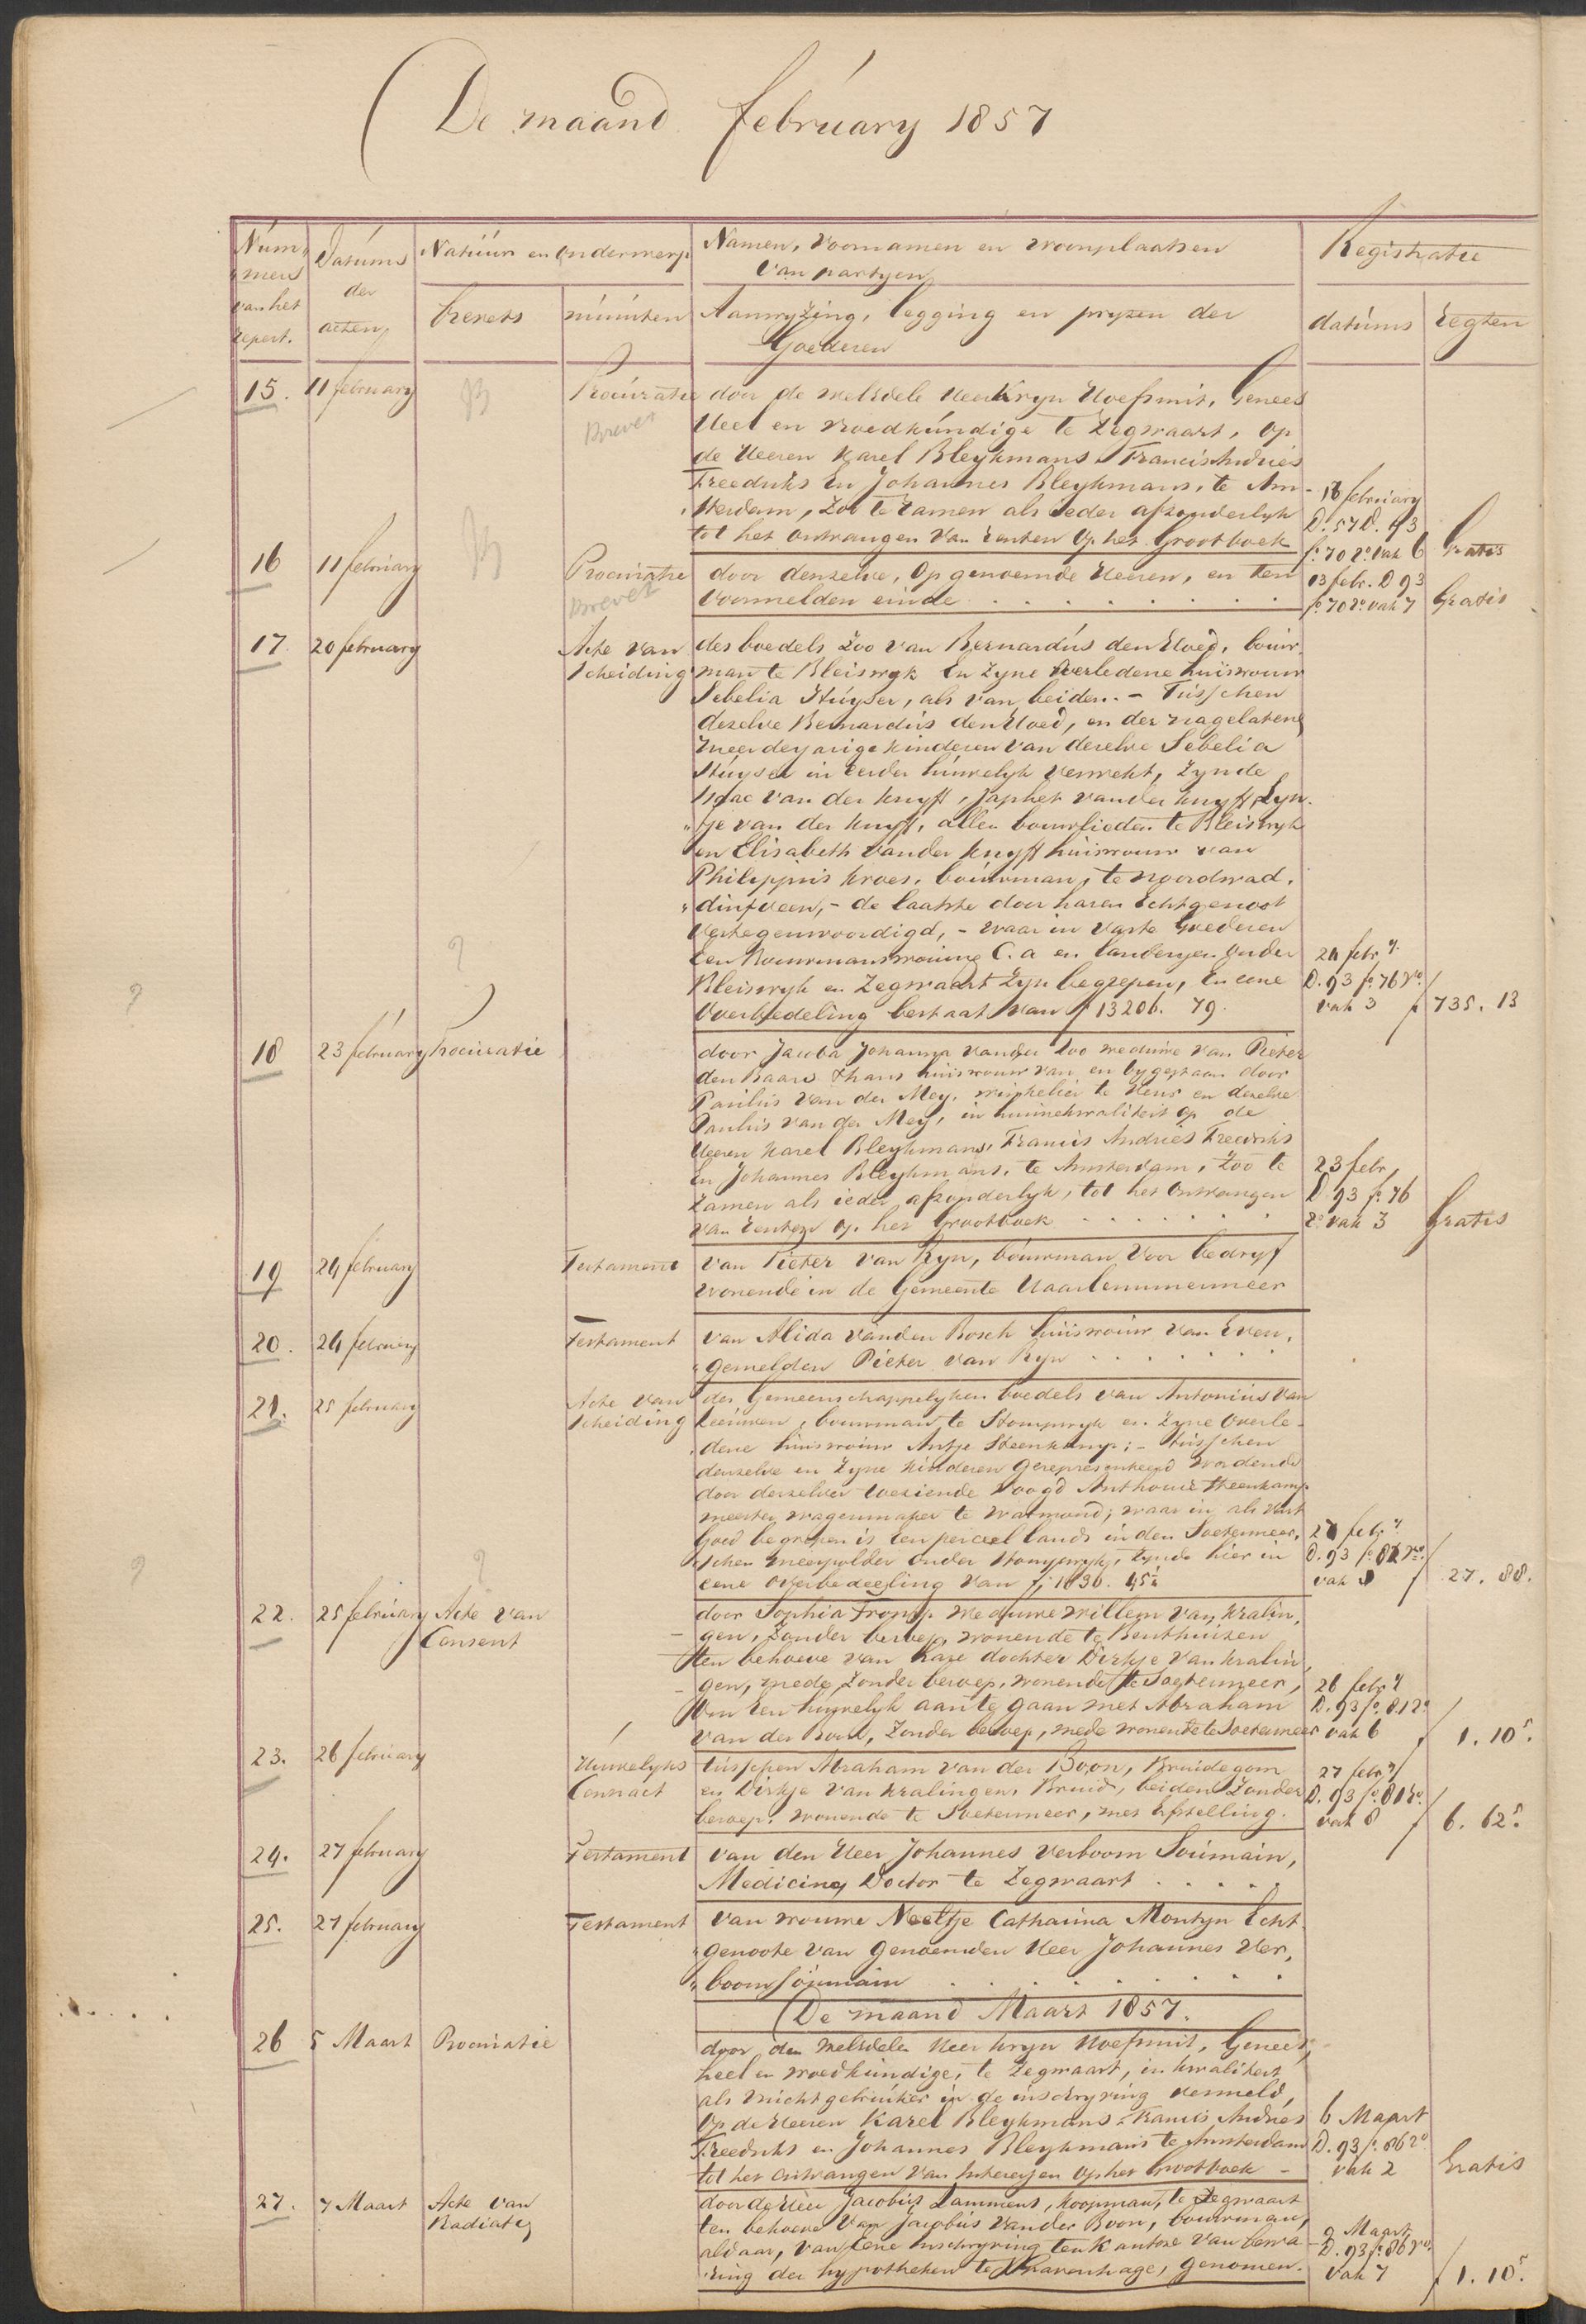 De maand february 1857
Num,
mers
van het
repert.
Datums
der
acten,
Natuur en onderwerp
brevets
minuten
Namen, Voornamen en woonplaatsen
van partyen
Aanwyzing, legging en pryzen der
Goederen
Registratie
datums
regten
15. 11 february
Procuratie
Brevet
door de weledele Heer Kryn Hoefsmit, Genees
Heel en vroedkundige te Zegwaart, op
de Heeren Karel Bleykmans, Francis Andries
Freedriks En Johannes Bleykmans, te Am-
sterdam, Zoo te zamen als ieder afzonderlyk
tot het ontvangen van renten op het Grootboek
D. 93
fo. 70 ro. vak 6 Gratis
16 11 february
Procuratie
Brevet
door denzelve, op genoemde Heeren, en ten
voormelden einde
13 febr. D 93
fo. 70 ro. vak 7 Gratis
17. 20 february
Acte van
Scheiding
des boedels Zoo van Bernardus den Hoed, bouw
man te Bleiswyk En Zyne overledene huisvrouw
Sebelia Stuyser, als van beiden. - Tusschen
dezelve Bernardus den Hoed, en der nagelatene
meerderjarige kinderen van dezelve Sebelia
Stuyser in eerder huwelyk verwekt, Zynde
Isaac van der Knyff, Japhet vander Knyff, Lyn.
"tje van der Knyff, allen bouwlieden te Bleiswyk
en Elisabeth vander Knyff huisvrouw van
Philippus Kroes, bouwman, te Noordwad,
"dinxveen, - de laatste door haren Echtgenoot
Vertegenwoordigd, - waar in vaste Goederen
Een Bouwmanswoning C. a en landeryen onder
Bleiswyk en Zegwaart Zyn begrepen, En eene
Overbedeling bestaat van f 13206. 79.
24 febry.
D. 93 fo. 76 vo.
vak 3 f 735. 13
18 23 february Procuratie
door Jacoba Johanna vander Loo weduwe van Pieter
den Baars thans huisvrouw van en bygestaan door
Paulus van der Mey, winkelier te Heur en dezelve
Paulus van der Mey, in kwaliteit op de
Heeren Karel Bleykmans, Francis Andries Freedriks
En Johannes Bleykmans, te Amsterdam, Zoo te
zamen als ieder afzonderlyk, tot het ontvangen
van renten op het Grootboek
23 febr,
D. 93 fo. 76
ro. vak 3 Gratis
19 24 february
Testament
van Pieter van Ryn, bouwman voor bedryf
wonende in de Gemeente Haarlemmermeer
20. 24 february
Testament
van Alida vanden Bosch huisvrouw van Even,
"gemelden Pieter van Ryn
21. 25 february
Acte van
Scheiding
des Gemeenschappelyken boedels van Antonius van
Leeuwen, bouwman te Stompwyk en Zyne Overle-
dene huisvrouw Antje Steenkamp; - tusschen
denzelve en Zyne kinderen Gerepresenteerd wordende
door derzelver toeziende voogd Anthonie Steenkamp
meester wagenmaker te Warmond; waar in als vast
Goed begrepen is Een perceel lands in den Soetermeer,
schen meerpolder onder Stompwyk, Zynde hier in
eene overbedeeling van f 1030. 45½
27 febry.
D. 93 fo. 82 vo.
vak 8 f 27. 88.
22. 25 february Acte van
Consent
door Sophia Tromp weduwe Willem van Kralin,
gen, Zonder beroep, wonende te Benthuizen
Ten behoeve van hare dochter Dirkje van Kralin,
gen, mede Zonder beroep, wonende te Soetermeer,
Om een huwelyk aan te gaan met Abraham
van der Boon, Zonder beroep, mede wonende te Soetermeer
26 febry
D. 93 fo. 81 ro.
vak 6 f 1. 10⁵.
23. 26 february
Huwelyks
Contract
tusschen Abraham van der Boon, Bruidegom
en Dirkje van Kralingen, Bruid, beiden Zonder
beroep, wonende te Soetermeer, met Erfstelling.
27 febry
D. 93 fo. 81 vo.
vak 8 f 6. 62⁵.
24. 27 february
Testament
van den Heer Johannes Verboom Soumain,
Medicine Doctor te Zegwaart
25. 27 february
Testament
van vrouwe Neeltje Catharina Montyn Echt
"genoote van Genoemden Heer Johannes Ver,
"boom Soumain
De maand Maart 1857.
26 5 Maart Procuratie
door den weledelen Heer Kryn Hoefsmit, Genees,
heel en vroedkundige, te Zegwaart, in kwaliteit
als vruchtgebruiker in de inschryving vermeld,
Op de Heeren Karel Bleykmans, Francis Andries
Freedriks en Johannes Bleykmans te Amsterdam
tot het ontvangen van Interessen op het Grootboek -
6 Maart
D. 93 fo. 86 ro.
vak 2 Gratis
27. 7 Maart Acte van
Radiatie
door de Heer Jacobus Lammens, koopman, te Zegwaart
ten behoeve van Jacobus vander Boon, bouwman,
aldaar, van Eene Inschryving ten kantore van bewa
"ring der hypotheken te s'Gravenhage, genomen.
9 Maart
D. 93 fo. 86 vo.
vak 7 f 1. 10⁵.